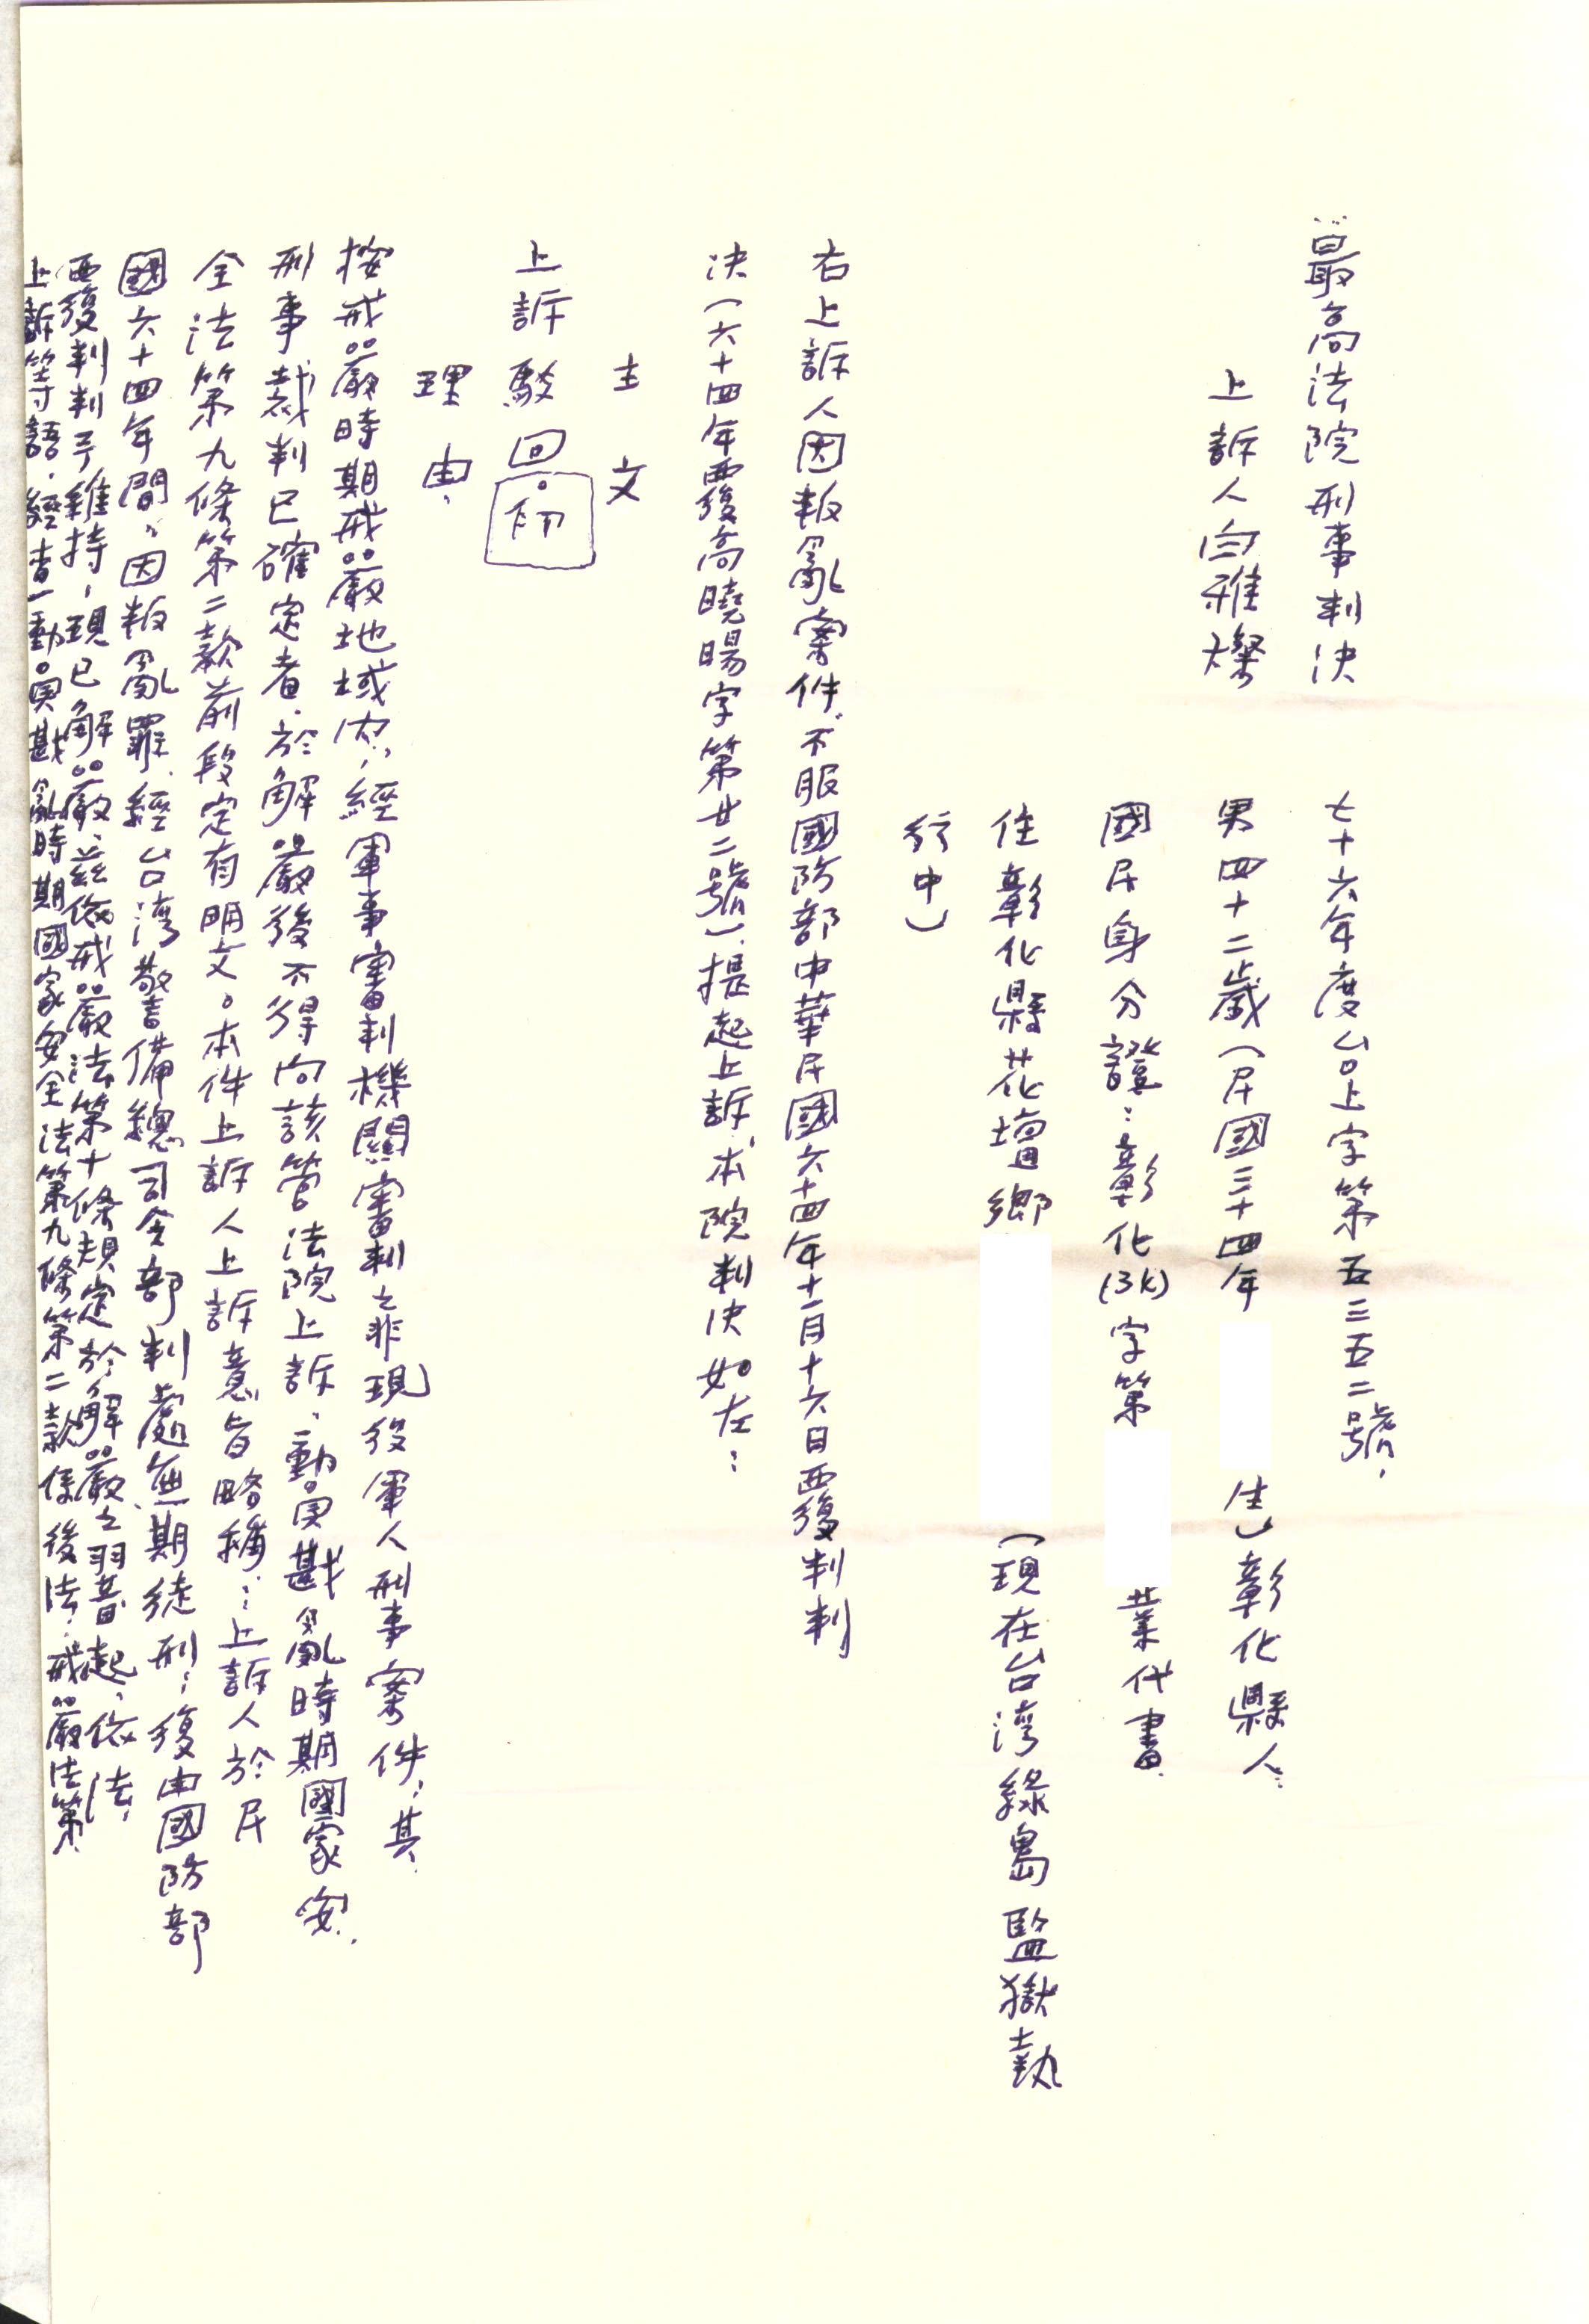 最高法院刑事判決
七十六年度台上字第五三五二號.
上訴人白雅燦
男四十二歲(民國三十四年
生)彰化縣人.
國民身分證:彰化(3K)字第
業代書.
住彰化縣花壇鄉
(現在台湾綠島監獄執
行中)
右上訴人因叛亂案件不服國防部中華民國六十四年十一月十六日覆判判
決(六十四年覆高曉暘字第廿二號).提起上訴.本院判決如左:
主文
上訴駁回。
理由.
按戒嚴時期戒嚴地域內,經軍事審判機關審判之非現役軍人刑事案件,其.
刑事裁判已確定者.於解嚴後不得向該管法院上訴.動員戡亂時期國家安.
全法第九條第二款前段定有明文。本件上訴人上訴意旨略稱:上訴人於民
國六十四年間,因叛亂罪.經台湾警備總司令部判處無期徒刑;復由國防部
覆判判予維持,現已解嚴.茲依戒嚴法第十條規定於解嚴之翌日起,依法,
上訴等語.經查動員戡亂時期國家安全法第九條第二款係後法.戒嚴法第.